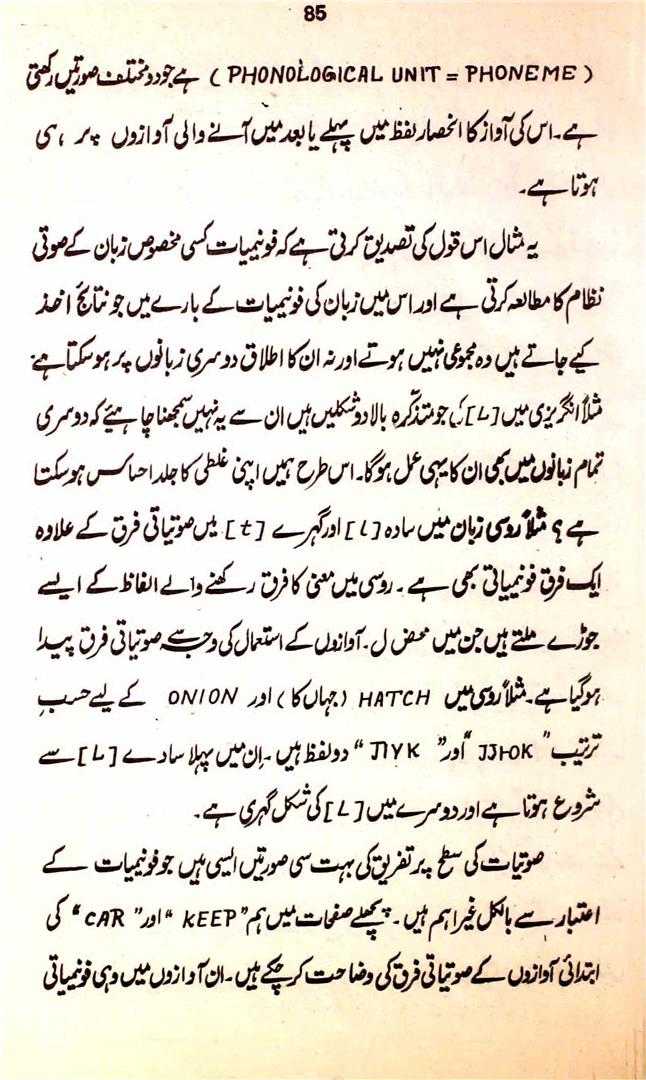 85
(PHONOLOGICAL UNIT = PHONEME) ہے جو دو مختلف صورتیں رکھتی
ہے۔ اس کی آواز کا انحصار لفظ میں پہلے یا بعد میں آنے والی آوازوں پر ہی
ہوتا ہے۔
یہ مثال اس قول کی تصدیق کرتی ہے کہ فونیمیات کسی مخصوص زبان کے صوتی
نظام کا مطالعہ کرتی ہے اور اس میں زبان کی فونیمیات کے بارے میں جو نتائج اخذ
کیے جاتے ہیں وہ مجموعی نہیں ہوتے اور نہ ان کا اطلاق دوسری زبانوں پر ہو سکتا ہے
مثلاً انگریزی میں [L] کی جو متذکّرہ بالا دو شکلیں ہیں ان سے یہ نہیں سمجھنا چاہیئے کہ دوسری
تمام زبانوں میں بھی ان کا یہی عمل ہوگا۔ اس طرح ہمیں اپنی غلطی کا جلد احساس ہو سکتا
ہے؟ مثلاً روسی زبان میں سادہ [l] اور گہرے [ɫ] میں صوتیاتی فرق کے علاوہ
ایک فرق فونیمیاتی بھی ہے۔ روسی میں معنی کا فرق رکھنے والے الفاظ کے ایسے
جوڑے ملتے ہیں جن میں محض ل۔ آوازوں کے استعمال کی وجہ سے صوتیاتی فرق پیدا
ہوگیا ہے۔ مثلاً روسی میں HATCH (جہاں کا) اور ONION کے لیے حسبِ
ترتیب "JJHOK" اور "JIYK" دو لفظ ہیں۔ اِن میں پہلا سادے [L] سے
شروع ہوتا ہے اور دوسرے میں [L] کی شکل گہری ہے۔
صوتیات کی سطح پر تفریق کی بہت سی صورتیں ایسی ہیں جو فونیمیات کے
اعتبار سے بالکل غیر اہم ہیں۔ پچھلے صفحات میں ہم "KEEP" اور "CAR" کی
ابتدائی آوازوں کے صوتیاتی فرق کی وضاحت کر چکے ہیں۔ ان آوازوں میں وہی فونیمیاتی